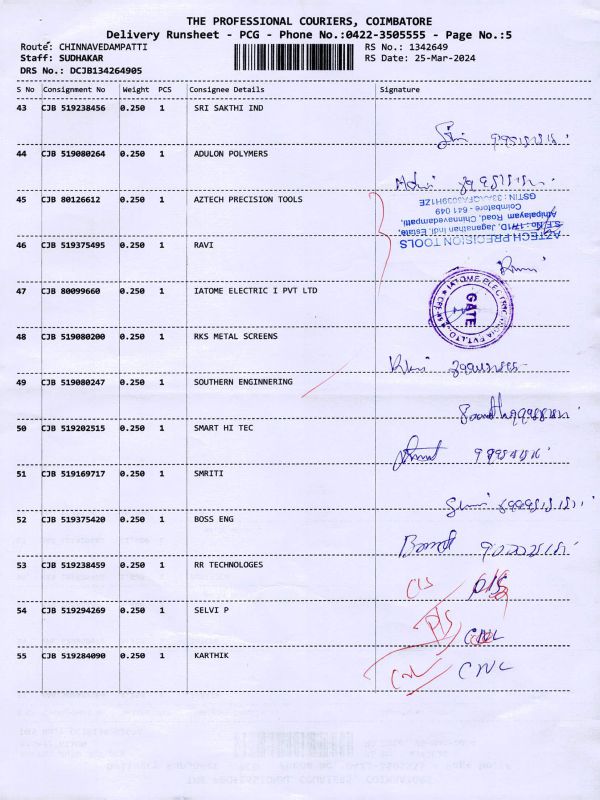 THE PROFESSIONAL COURIERS, COIMBATORE
Delivery Runsheet - PCG - Phone No.:0422-3505555 - Page No.:5
Route: CHINNAVEDAMPATTI RS No.: 1342649
Staff: SUDHAKAR RS Date: 25-Mar-2024
DRS No.: DCJB134264905
S No Consignment No Weight PCS Consignee Details Signature
43 CJB 519238456 0.250 1 SRI SAKTHI IND
44 CJB 519080264 0.250 1 ADULON POLYMERS
45 CJB 80126612 0.250 1 AZTECH PRECISION TOOLS
AZTECH PRECISION TOOLS
Jaganathan Indl. Estate,
Athipalayam Road, Chinnavedampatti,
Coimbatore - 641 049
46 CJB 519375495 0.250 1 RAVI
47 CJB 80099660 0.250 1 IATOME ELECTRIC I PVT LTD
GATE
48 CJB 519080200 0.250 1 RKS METAL SCREENS
49 CJB 519080247 0.250 1 SOUTHERN ENGINNERING
50 CJB 519202515 0.250 1 SMART HI TEC
51 CJB 519169717 0.250 1 SMRITI
52 CJB 519375420 0.250 1 BOSS ENG
53 CJB 519238459 0.250 1 RR TECHNOLOGES
54 CJB 519294269 0.250 1 SELVI P
55 CJB 519284090 0.250 1 KARTHIK CNL